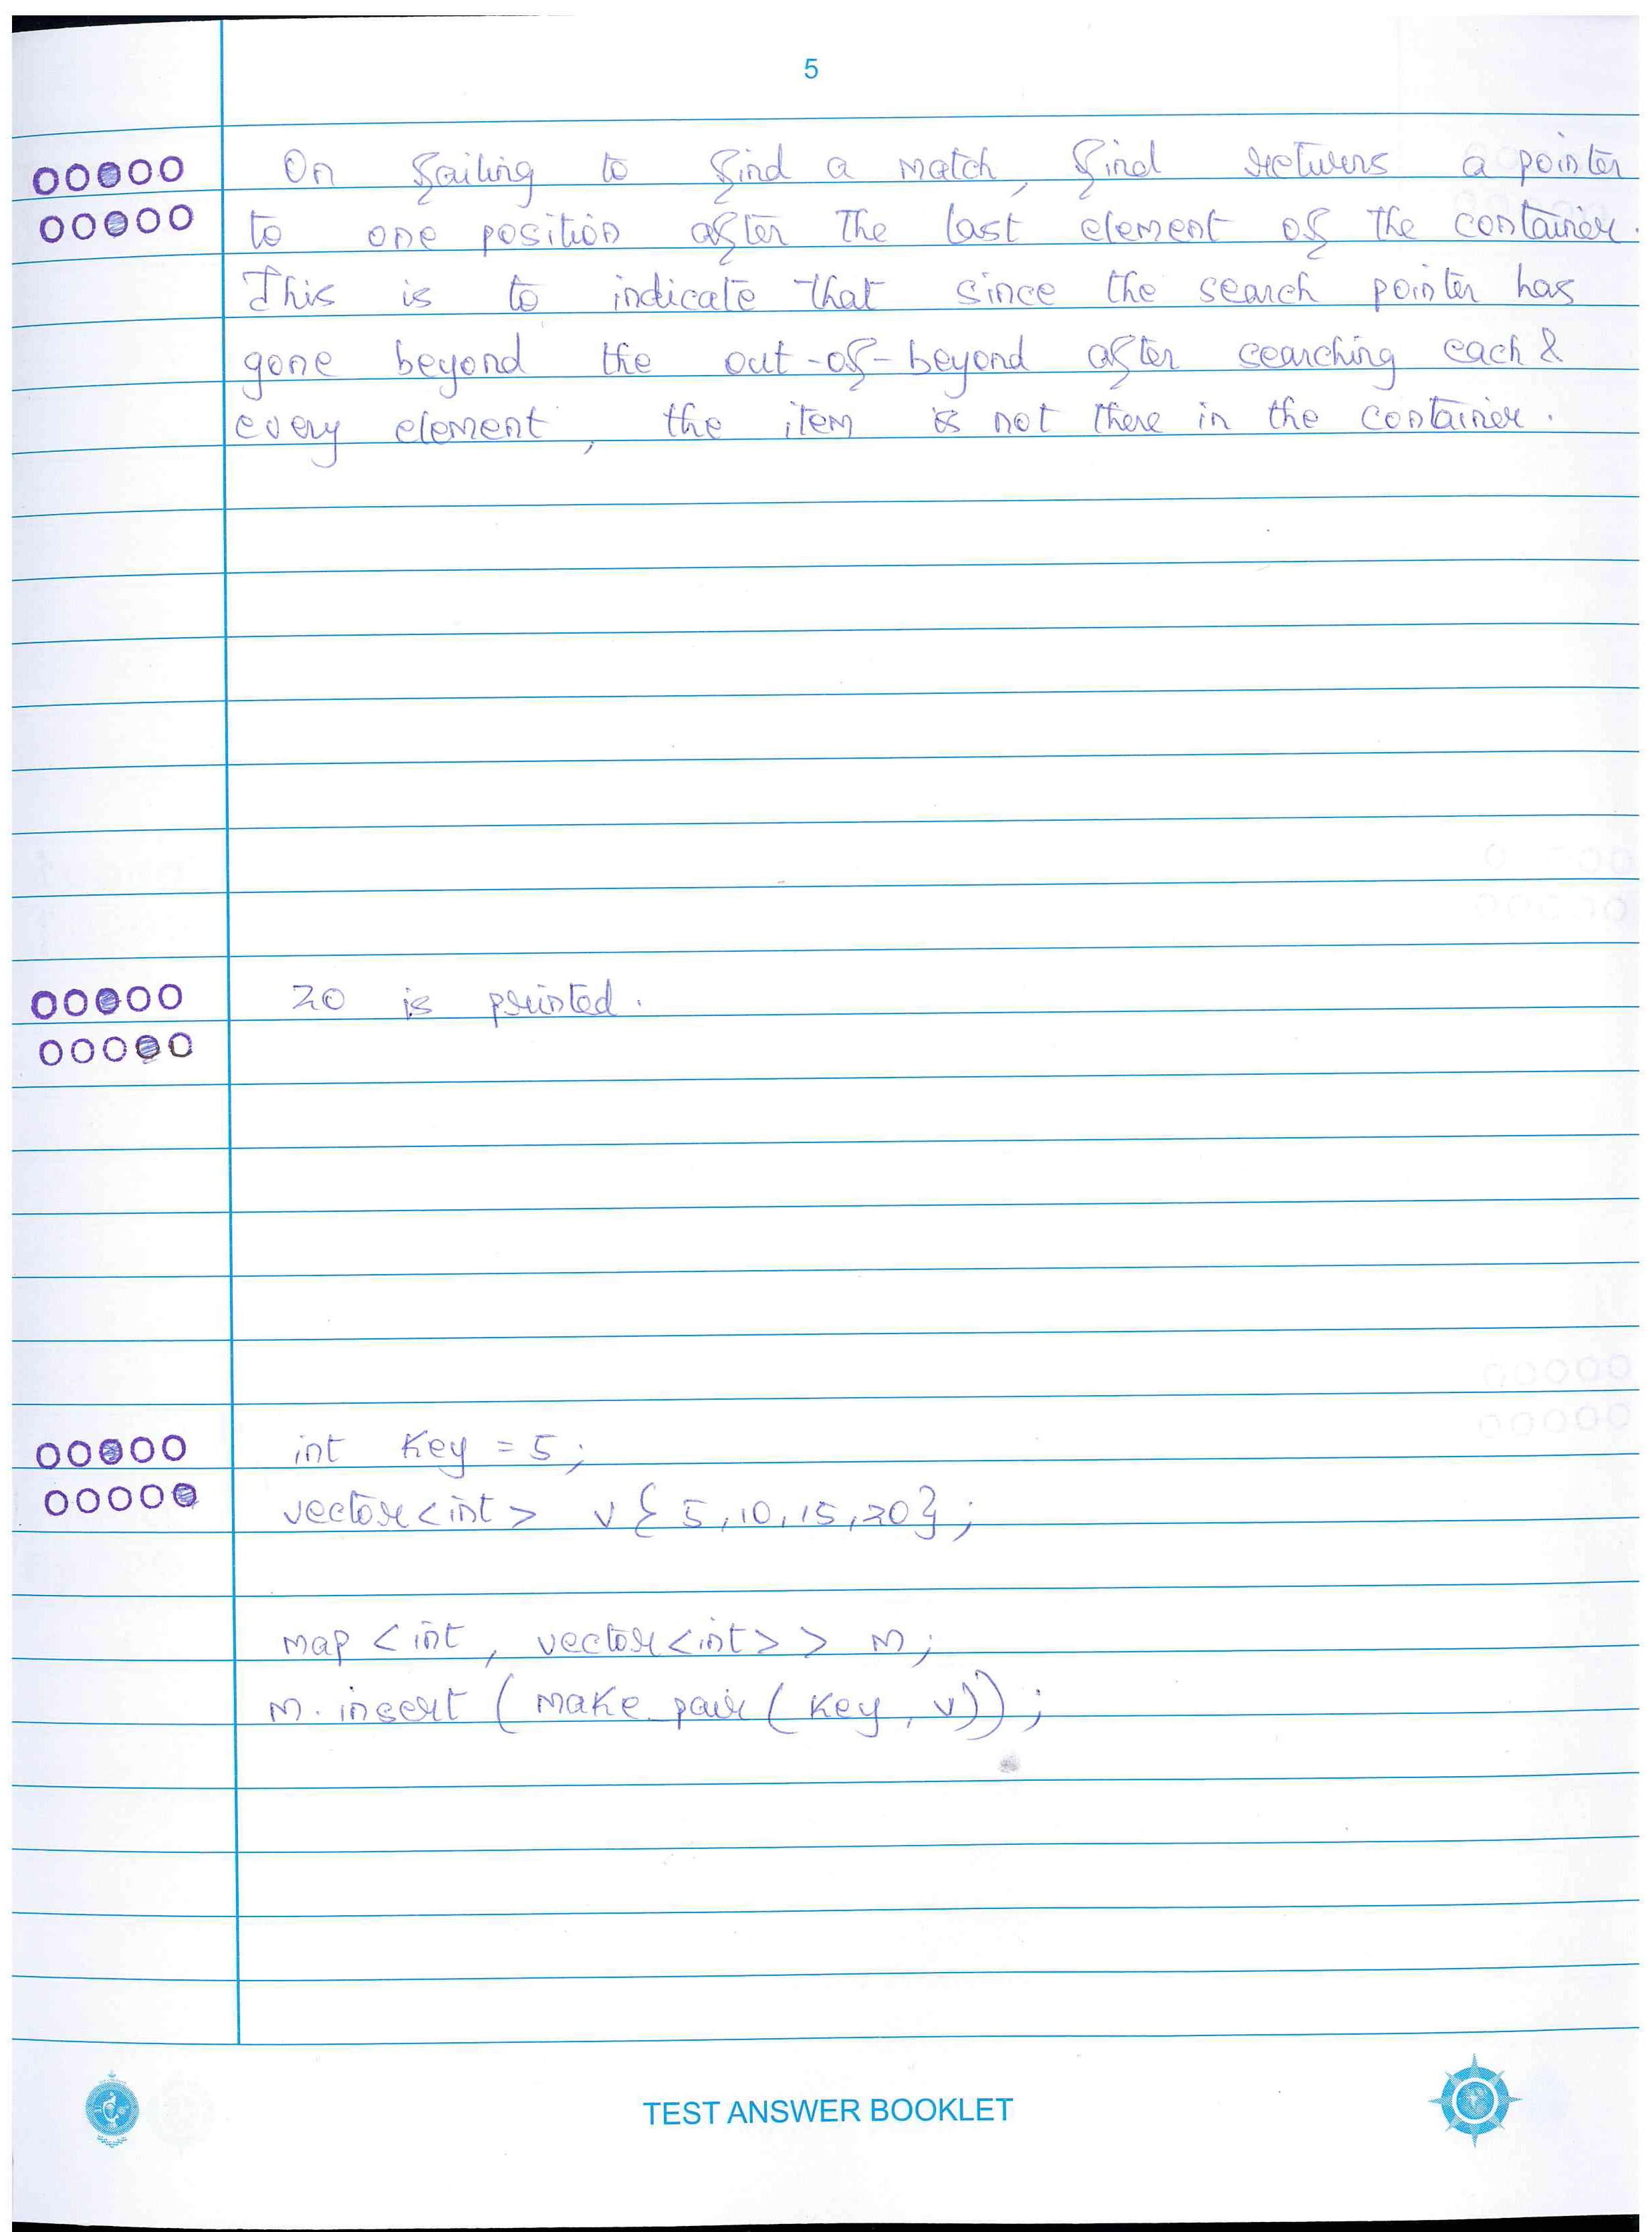 5
On failing to find a match, find returns a pointer
to one position after the last element of the container.
This is to indicate that since the search pointer has
gone beyond the out-of-beyond after searching each &
every element, the item is not there in the container.
20 is printed.
int key = 5;
vector<int> v{5,10,15,20};
map <int, vector<int> > m;
m.insert (make_pair (key, v));
TEST ANSWER BOOKLET